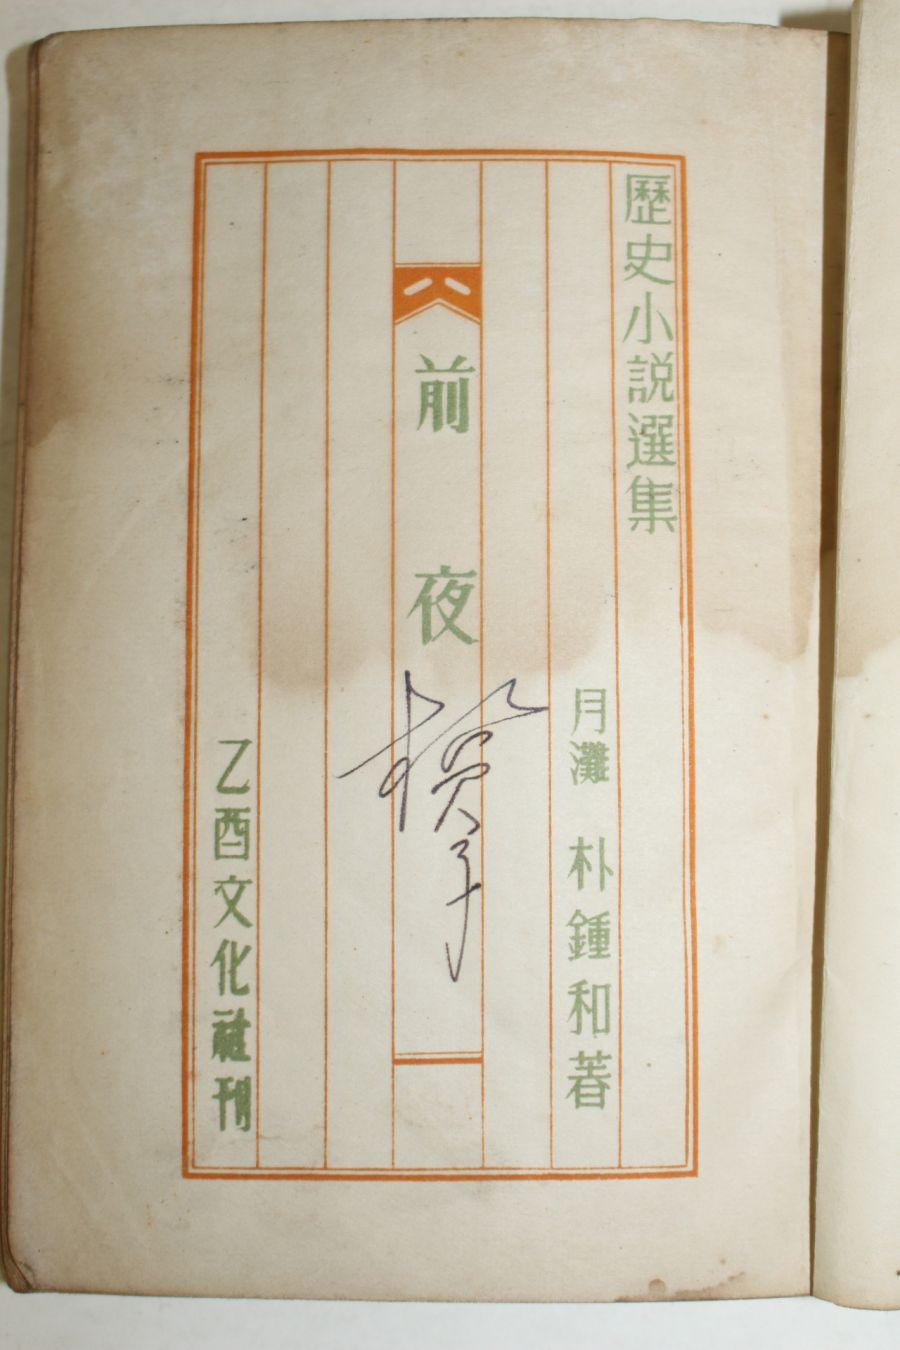 歷史小説選集
月灘 朴鍾和著
前夜
乙酉文化社刊